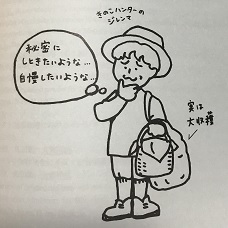 きのこハンターの
ジレンマ
秘密に
しときたいような…
自慢したいような…
実は
大収穫